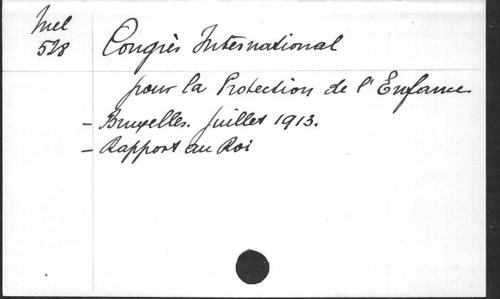 Mel
528
Congrès International
pour la Protection de l'Enfance
- Bruxelles. Juillet 1913.
- Rapport au Roi